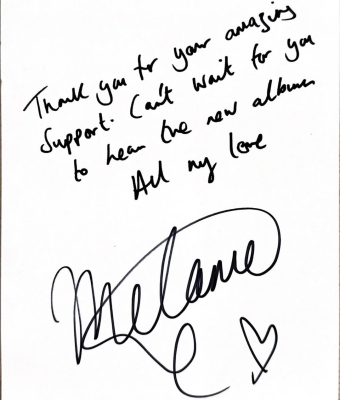 Thank you for your amazing
Support. Can't wait for you
to hear the new album
All my love
Melanie C